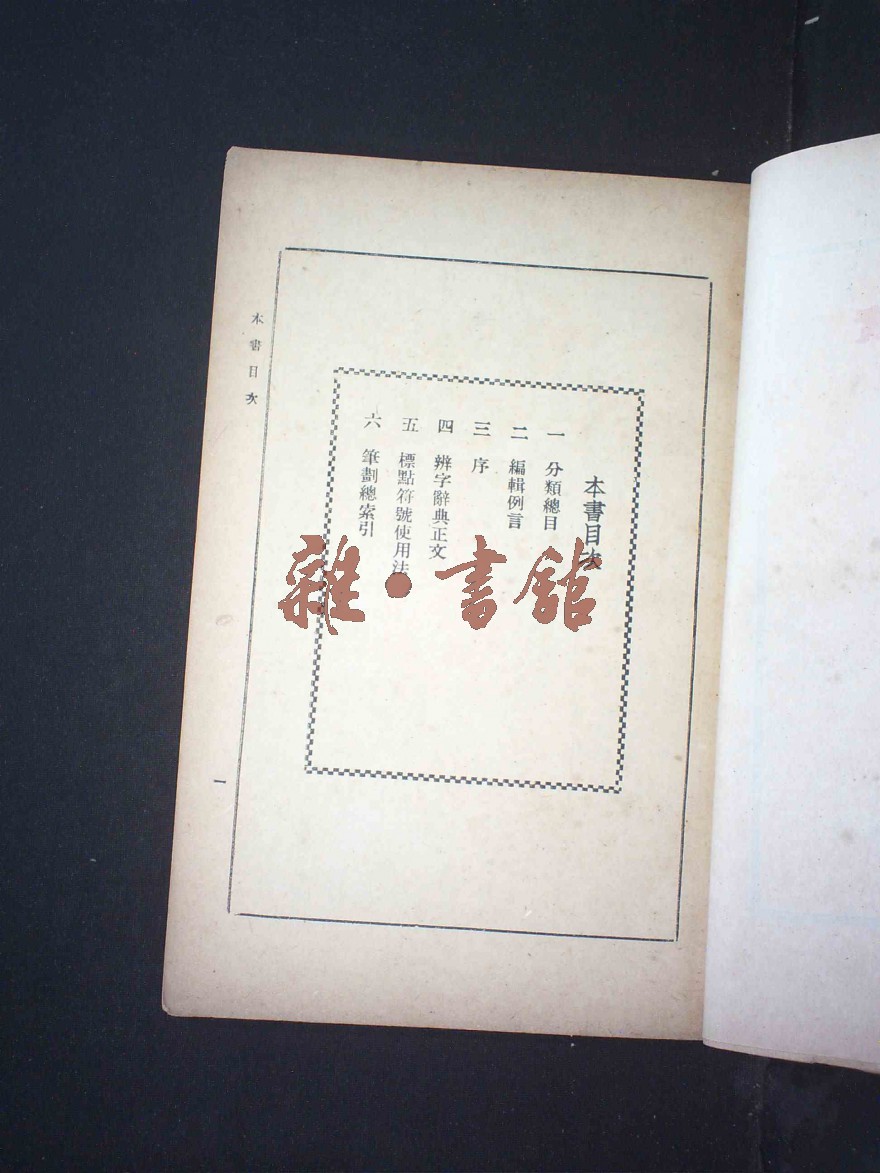 本書目次
一　分類總目
二　編輯例言
三　序
四　辨字辭典正文
五　標點符號使用法
六　筆劃總索引
本書目次
一
雜·書館